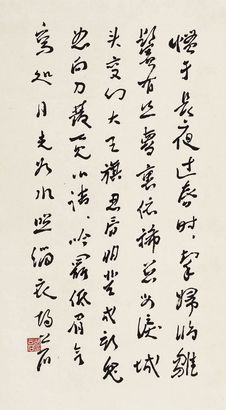 慣于長夜过春時，挈婦將雛
鬢有丝夢裏依稀慈母淚城
头变幻大王旗忍看朋輩成新鬼
怒向刀叢覓小詩、吟罷低眉无
寫処月光如水照緇衣